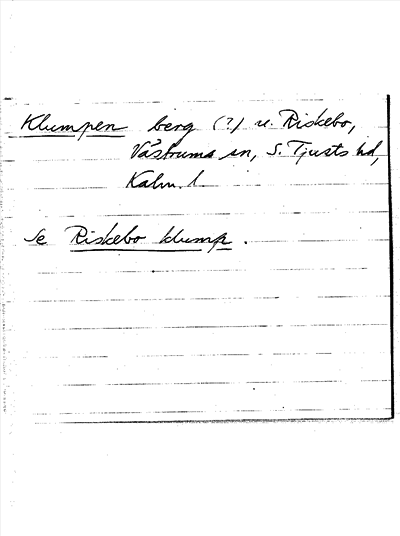 Klumpen berg (?) u. Riskebo,
Västrums sn, S. Tjusts hd,
Kalm. l.
Se Riskebo klump.